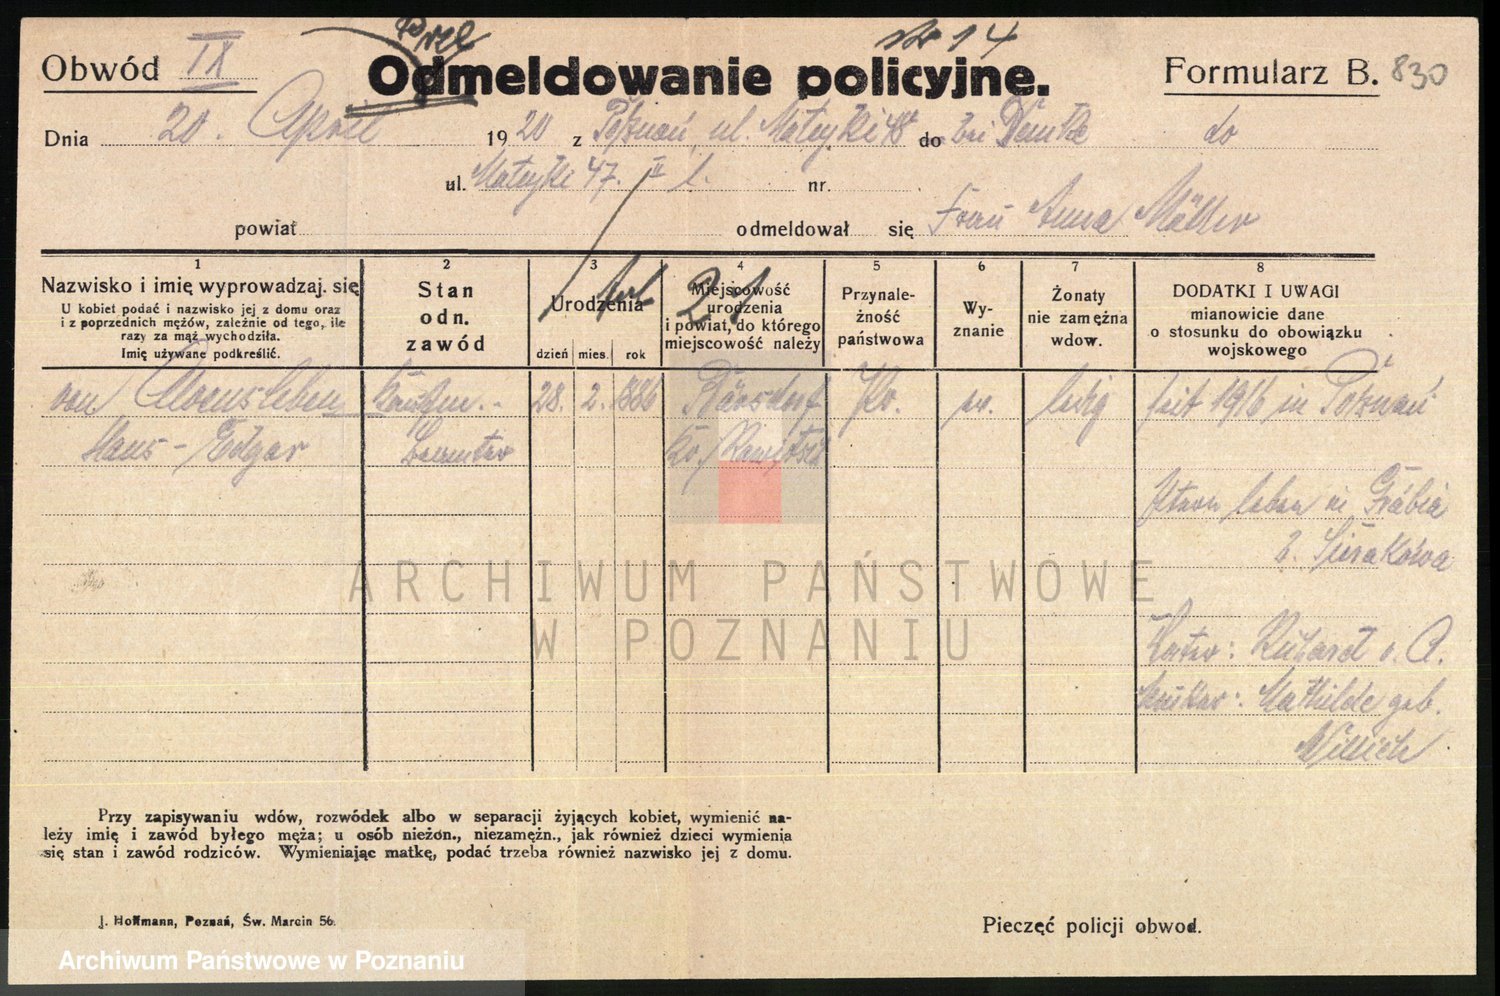 Obwód IX
Odmeldowanie policyjne.
Formularz B. 830
Nr 14
Dnia 20. April 1920 z Poznań, ul. Matejki 48 do bei Demke do
ul. Matejki 47. II l. nr.
powiat odmeldował się Frau Anna Müller
1 2 3 4 5 6 7 8
Nazwisko i imię wyprowadzaj. się
U kobiet podać i nazwisko jej z domu oraz
i z poprzednich mężów, zależnie od tego, ile
razy za mąż wychodziła.
Imię używane podkreślić.
Stan
odn.
zawód
Urodzenia
dzień mies. rok
Miejscowość
urodzenia
i powiat, do którego
miejscowość należy
21
Przynale-
żność
państwowa
Wy-
znanie
Żonaty
nie zamężna
wdow.
DODATKI I UWAGI
mianowicie dane
o stosunku do obowiązku
wojskowego
von Alvensleben Kaufm.- 28. 2. 886 Bärsdorf Pr. ev. ledig seit 1916 in Poznań
Hans-Edgar Beamter Kr. Rawitsch
Eltern leben in
b. Sierakowa
Vater: Richard v. A.
Mutter: Mathilde geb.
Willich
ARCHIWUM PAŃSTWOWE
W POZNANIU
Przy zapisywaniu wdów, rozwódek albo w separacji żyjących kobiet, wymienić na-
leży imię i zawód byłego męża; u osób nieżon., niezamężn., jak również dzieci wymienia
się stan i zawód rodziców. Wymieniając matkę, podać trzeba również nazwisko jej z domu.
J. Hoffmann, Poznań, Św. Marcin 56.
Pieczęć policji obwod.
Archiwum Państwowe w Poznaniu